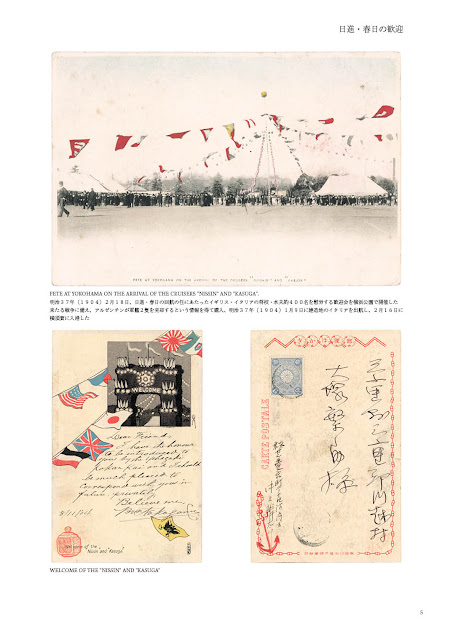 日進・春日の歓迎
FETE AT YOKOHAMA ON THE ARRIVAL OF THE CRUISERS "NISSIN" AND "KASUGA".
FETE AT YOKOHAMA ON THE ARRIVAL OF THE CRUISERS "NISSIN" AND "KASUGA".
明治37年（1904）2月18日、日進・春日の回航の任にあたったイギリス・イタリアの将校・水夫約400名を慰労する歓迎会を横浜公園で開催した
来たる戦争に備え、アルゼンチンが軍艦2隻を売却するという情報を得て購入、明治37年（1904）1月9日に建造地のイタリアを出航し、2月16日に
横須賀に入港した
WELCOME
Dear Friend,
I have the honour
to be introduced to
you by the
and I should
be much pleased to
correspond with you in
future privately
Believe me
Welcome of the
Nissin and Kasuga
CARTE POSTALE
大塚
様
WELCOME OF THE "NISSIN" AND "KASUGA"
5